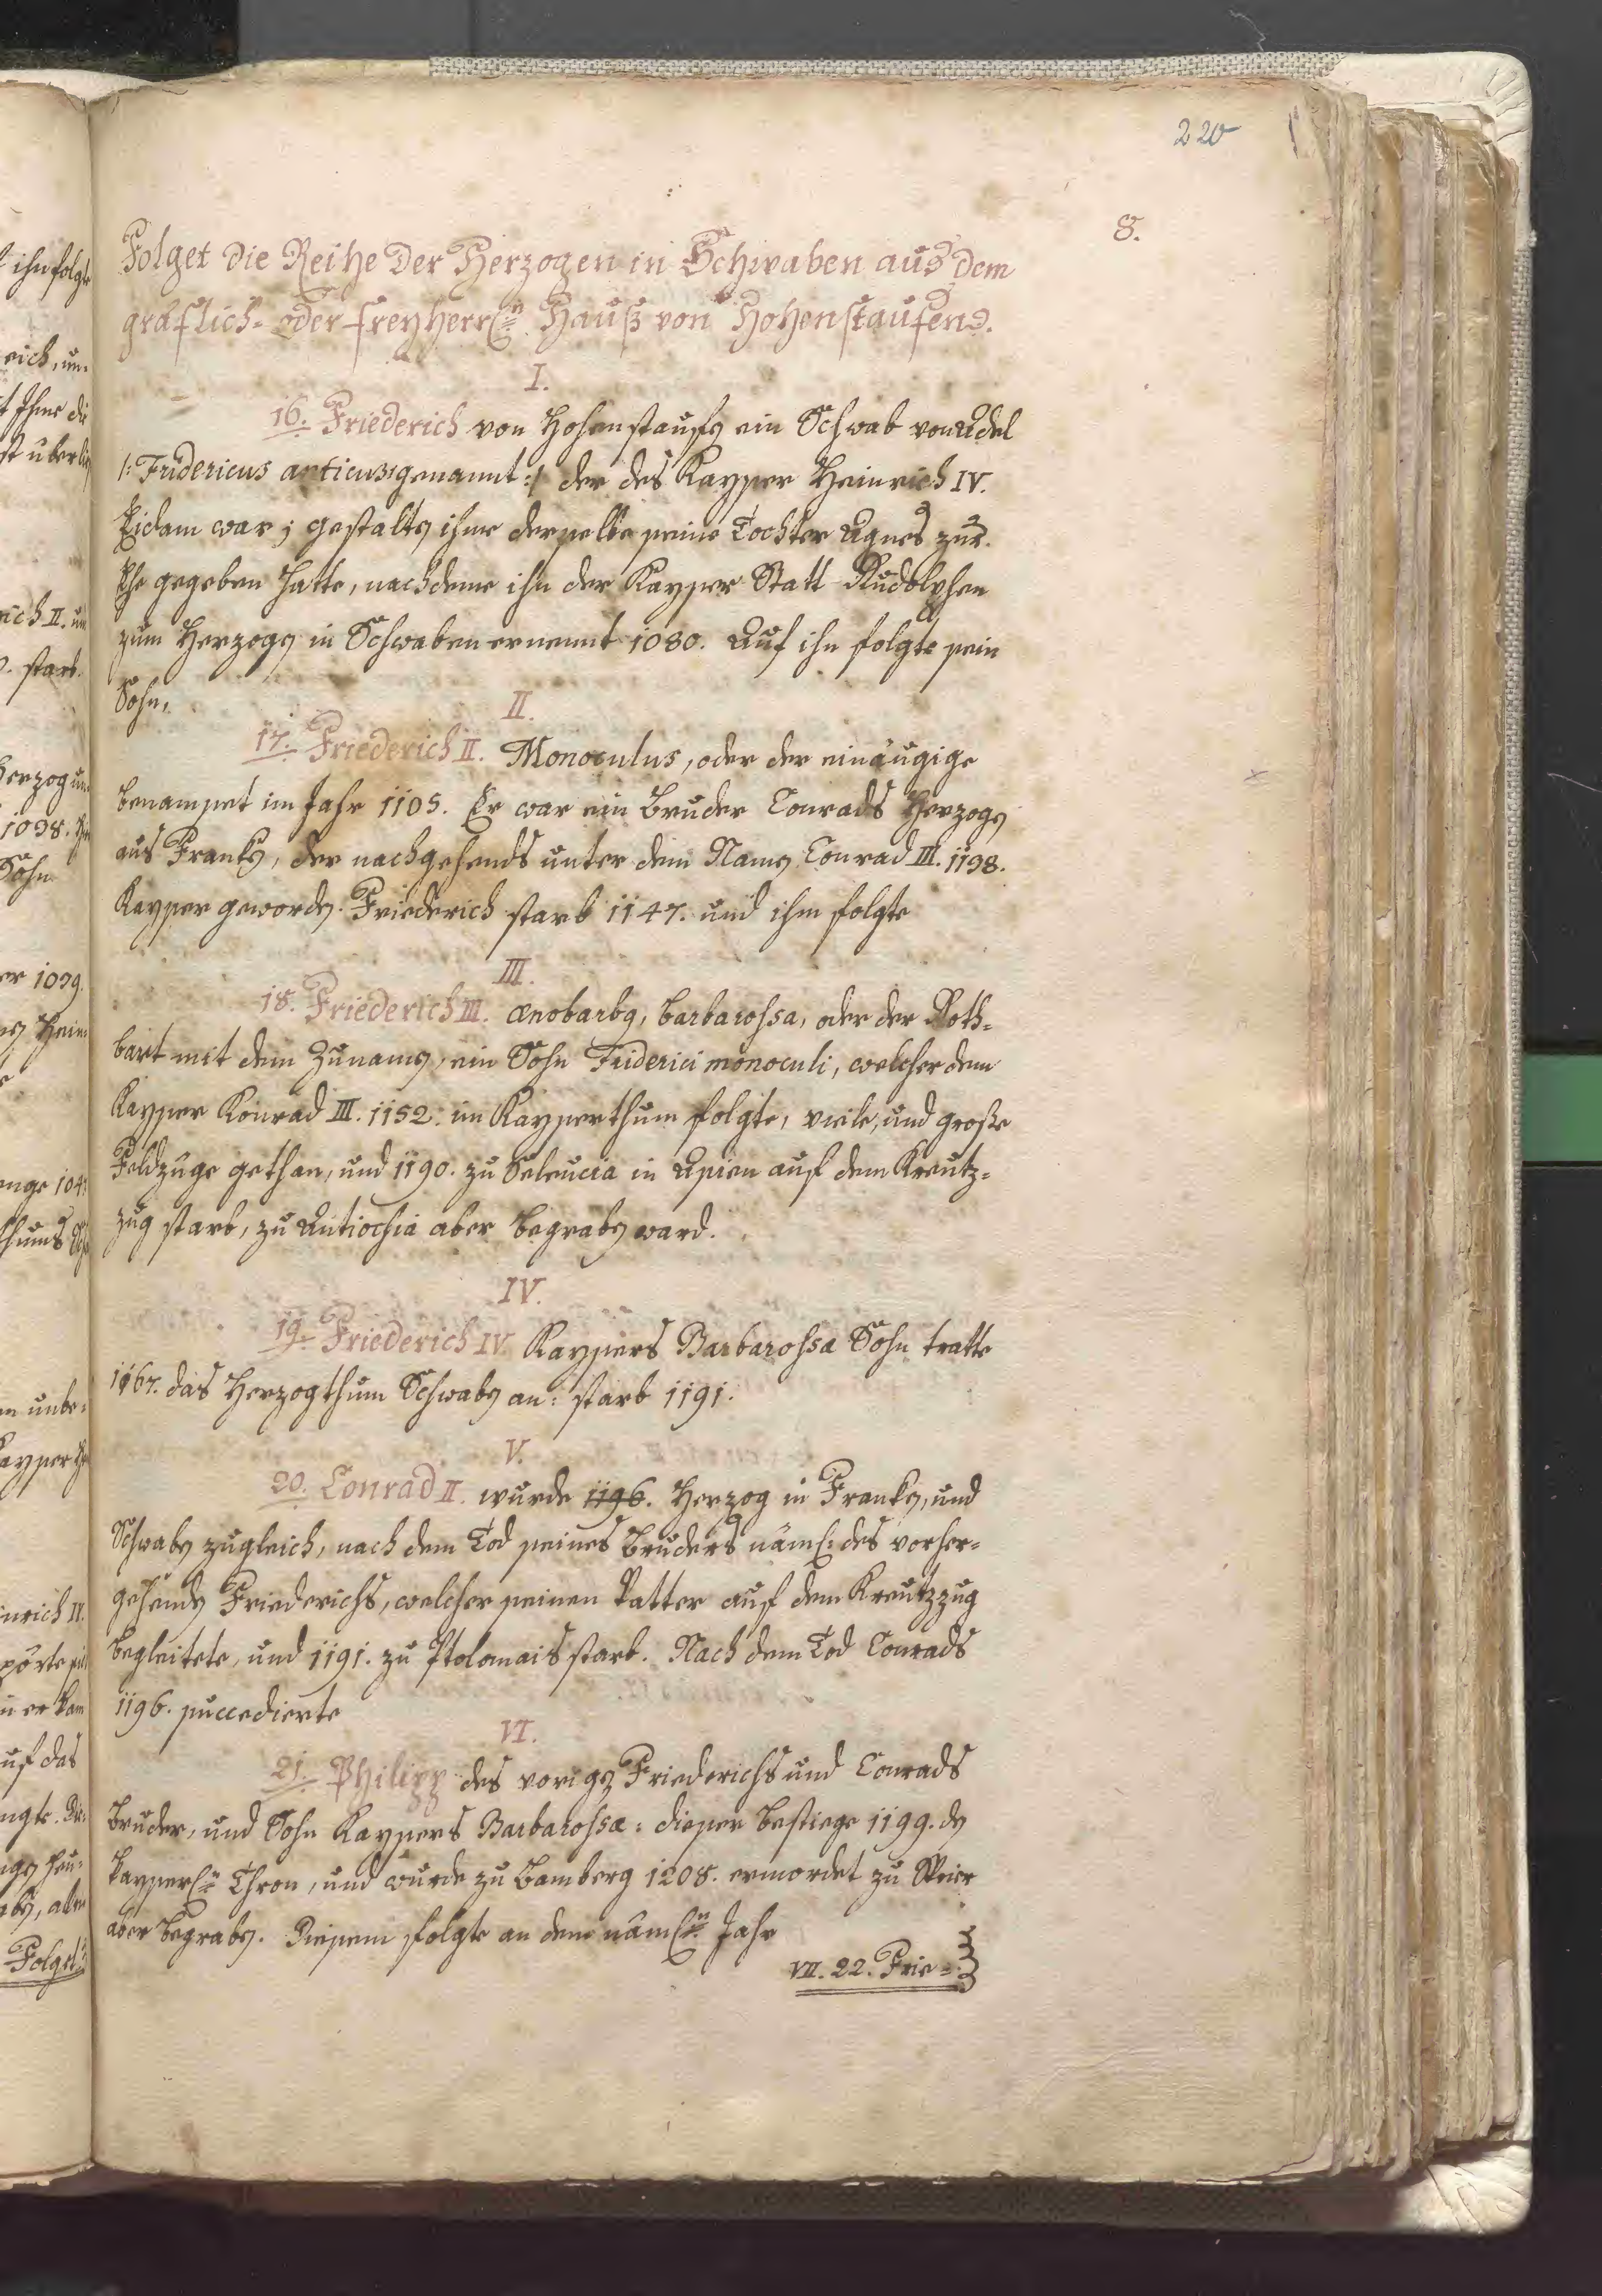 220
8.
Folget die Reihe der Herzogen in Schwaben aus dem
gräflich- oder freyherrl:n Hauß von Hohenstaufens.
I.
16. Friederich von Hohenstaufen ein Schwab von Adel
/: Fridericus anticus genannt :/ der des Kaysser Heinrich IV.
Eidam war; gestalten ihme derselbe seine Tochter Agnes zur
Ehe gegeben hatte, nachdeme ihn der Kaysser Statt Rudolphen
zum Herzogen in Schwaben ernennt 1080. Auf ihn folgte sein
Sohn,
II.
17. Friederich II. Monoculus, oder der einäugige
benamset im Jahr 1105. Er war ein Bruder Conrads Herzogen
aus Franken, der nachgehends unter dem Namen Conrad III. 1198.
Kaysser geworden. Friederich starb 1147. und ihm folgte
III.
18. Friederich III. ænobarbus, barbarossa, oder der Roth=
bart mit dem Zunamen, ein Sohn Friderici monoculi, welcher dem
Kaysser Konrad III. 1152. im Kaysserthum folgte, viele, und große
Feldzüge gethan, und 1190. zu Seleucia in Asien auf dem Kreutz=
zug starb, zu Antiochia aber begraben ward.
IV.
19. Friederich IV. Kayssers Barbarossa Sohn tratte
1167. das Herzogthum Schwaben an: starb 1191.
V.
20. Conrad II. wurde 1196. Herzog in Franken, und
Schwaben zugleich, nach dem Tod seines Bruders näml: des vorher=
gehenden Friederichs, welcher seinen Vatter auf dem Kreutzzug
begleitete, und 1191. zu Ptolomais starb. Nach dem Tod Conrads
1196. succedierte
VI.
21. Philipp des vorigen Friederichs und Conrads
Bruder, und Sohn Kayssers Barbarossæ: dieser bestiege 1199. den
kaysserl:n Thron, und wurde zu Bamberg 1208. ermordet zu Speier
aber begraben. Diesem folgte an dem näml:n Jahr
VII. 22. Frie=